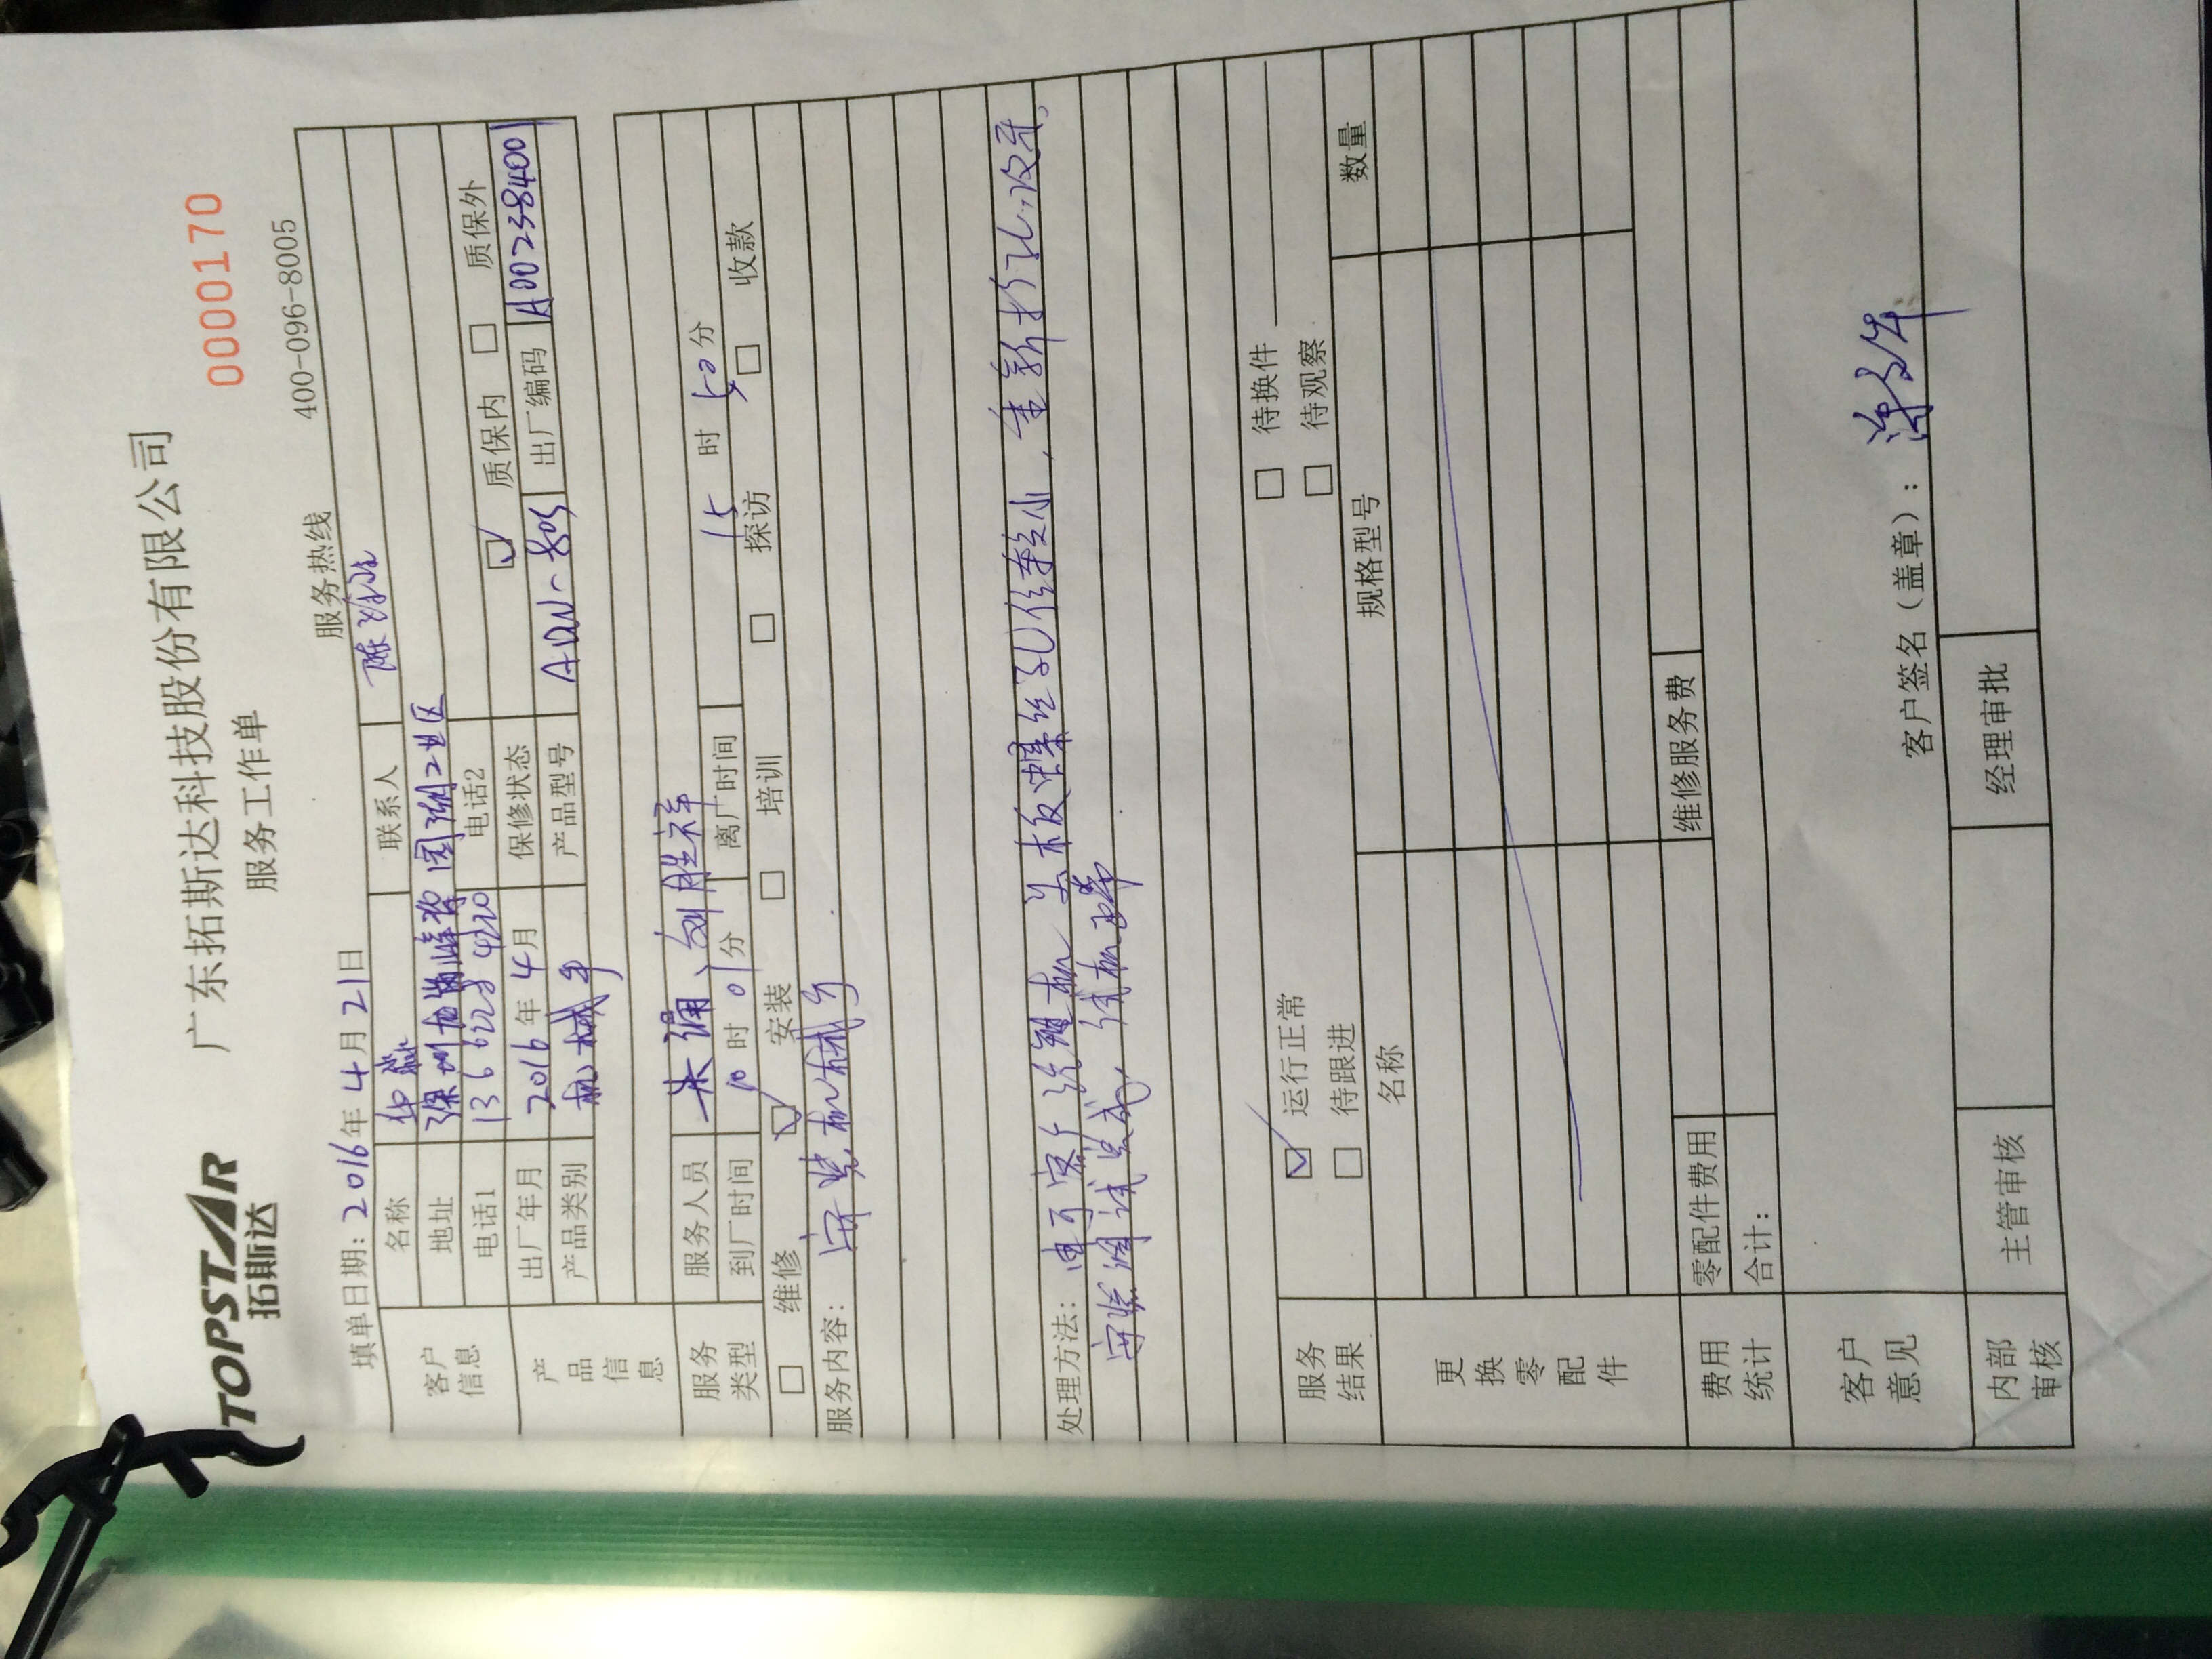 TOPSTAR
拓斯达
广东拓斯达科技股份有限公司
0000170
服务工作单
填单日期: 2016年 4月 21日
服务热线 400-096-8005
客户信息
名称 联系人 陈
地址 深圳 工业区
电话1 电话2
产品信息
出厂年月 2016年 4月 保修状态 质保内 质保外
产品类别 机械手 产品型号 出厂编码 A00238400
服务类型
服务人员 朱 、刘胜祥
到厂时间 10时 01分 离厂时间 15时 50分
维修 安装 培训 探访 收款
服务内容: 安装机械手
处理方法: 由于客户 机 板螺丝孔位较小, 重新打孔,攻牙,
安装调试完成, 试机正常
服务结果
运行正常 待换件
待跟进 待观察
更换零配件
名称 规格型号 数量
费用统计
零配件费用 维修服务费
合计:
客户意见
客户签名(盖章):
内部审核
主管审核 经理审批